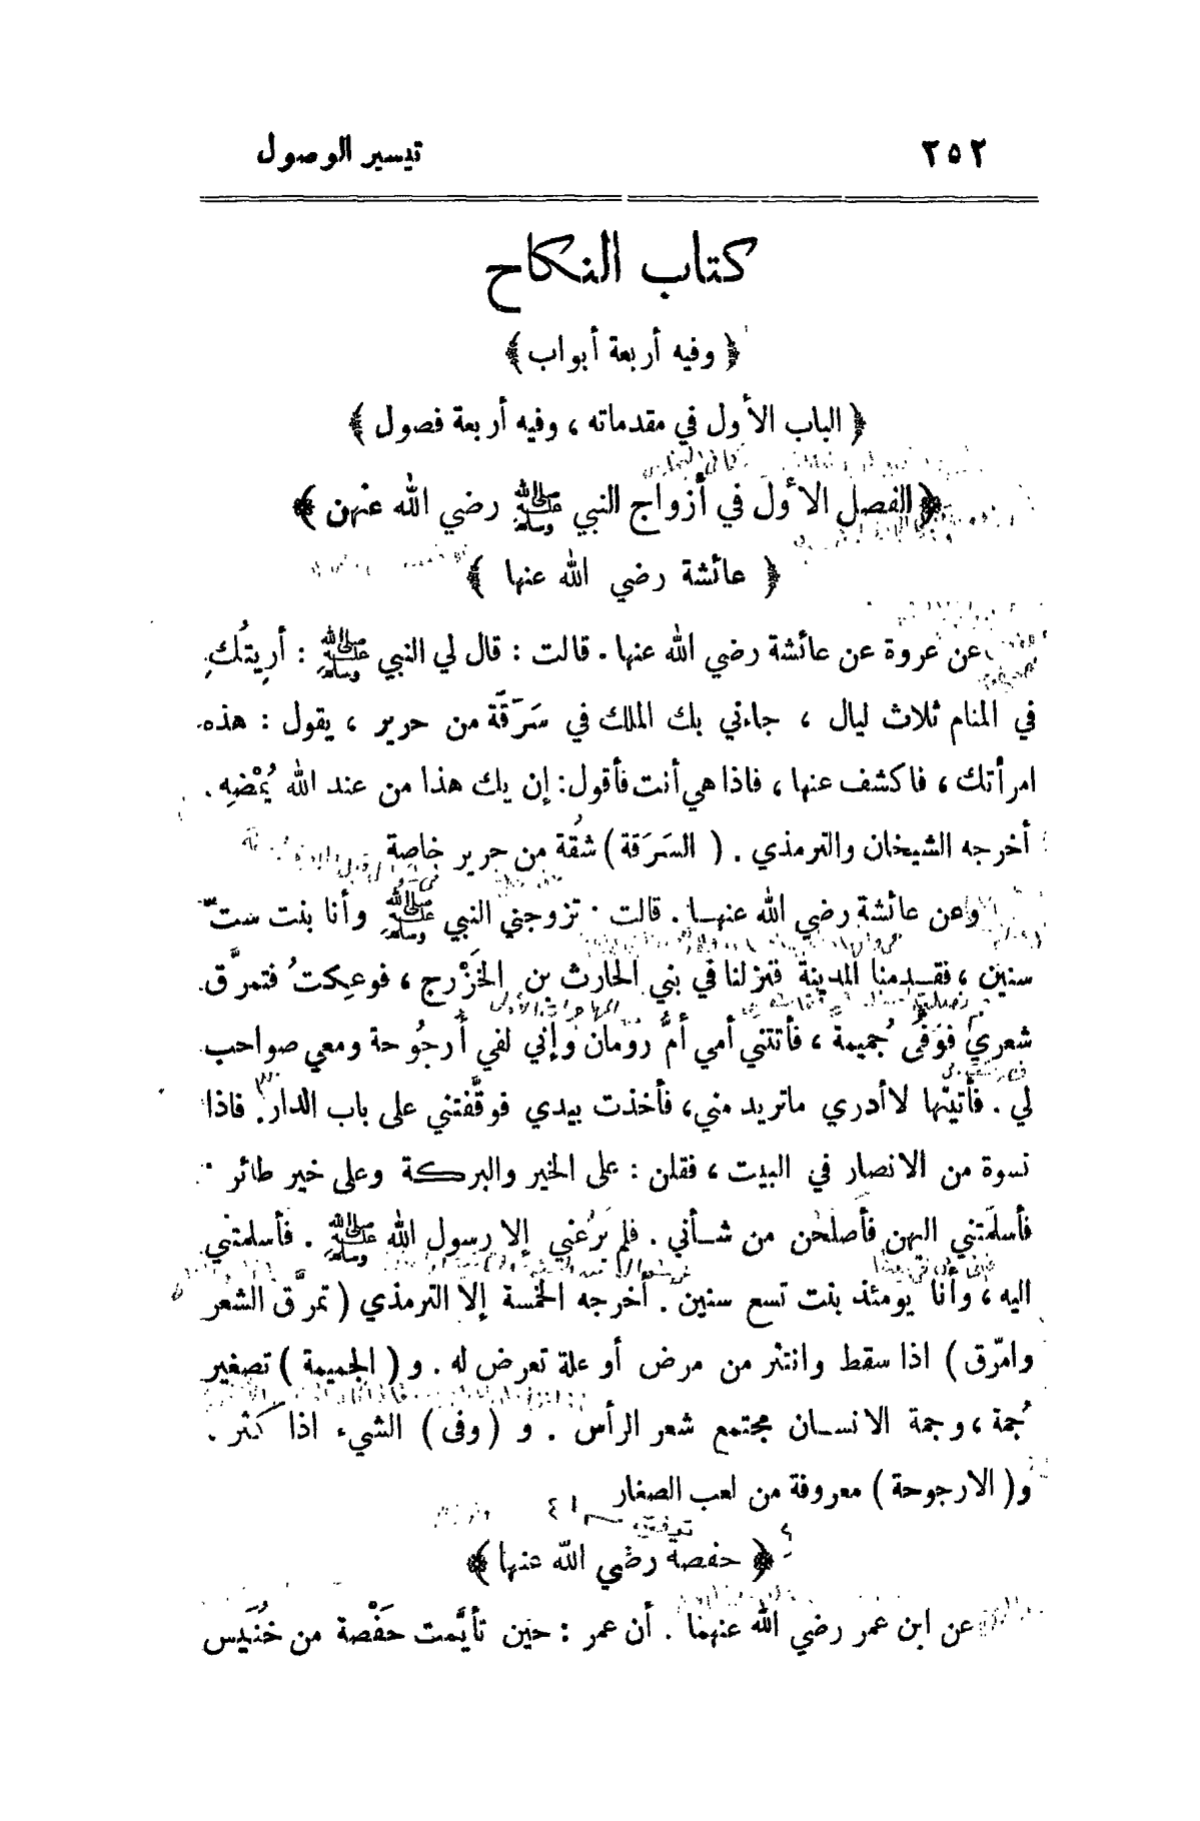 ٢٥٢ تيسير الوصول
كتاب النكاح
﴿ وفيه أربعة أبواب ﴾
﴿ الباب الأول في مقدماته ، وفيه أربعة فصول ﴾
﴿ الفصل الأول في أزواج النبي ﷺ رضي الله عنهن ﴾
﴿ عائشة رضي الله عنها ﴾
عن عروة عن عائشة رضي الله عنها . قالت : قال لي النبي ﷺ : أرِيتُكِ
في المنام ثلاث ليال ، جاءني بك الملك في سَرَقَة من حرير ، يقول : هذه
امرأتك ، فاكشف عنها ، فاذا هي أنت فأقول : إن يك هذا من عند الله يُمْضِهِ .
أخرجه الشيخان والترمذي . ( السَرَقة ) شُقة من حرير خاصة
وعن عائشة رضي الله عنها . قالت . تزوجني النبي ﷺ وأنا بنت ستّ
سنين ، فقدمنا المدينة فنزلنا في بني الحارث بن الخَزْرج ، فوعِكتُ فتمرَّق
شعري فوَفَى جُميمة ، فأتتني أمي أمُّ رومان وإني لفي أُرجُوحة ومعي صواحب
لي . فأتيتها لا أدري ما تريد مني ، فأخذت بيدي فوقَّفتني على باب الدار . فاذا
نسوة من الانصار في البيت ، فقلن : على الخير والبركة وعلى خير طائر .
فأسلَمَتني اليهن فأصلَحن من شأني . فلم يَرُعني إلا رسول الله ﷺ . فأسلمتني
اليه ، وأنا يومئذ بنت تسع سنين . أخرجه الخمسة إلا الترمذي ( تمرَّق الشعر
وامّرق ) اذا سقط وانتثر من مرض أو علة تعرض له . و ( الجميمة ) تصغير
جُمة ، وجمة الانسان مجتمع شعر الرأس . و ( وفى ) الشيء اذا كثر .
و ( الارجوحة ) معروفة من لعب الصغار
﴿ حفصة رضي الله عنها ﴾
عن ابن عمر رضي الله عنهما . أن عمر : حين تأيَّمت حَفْصة من خُنَيس